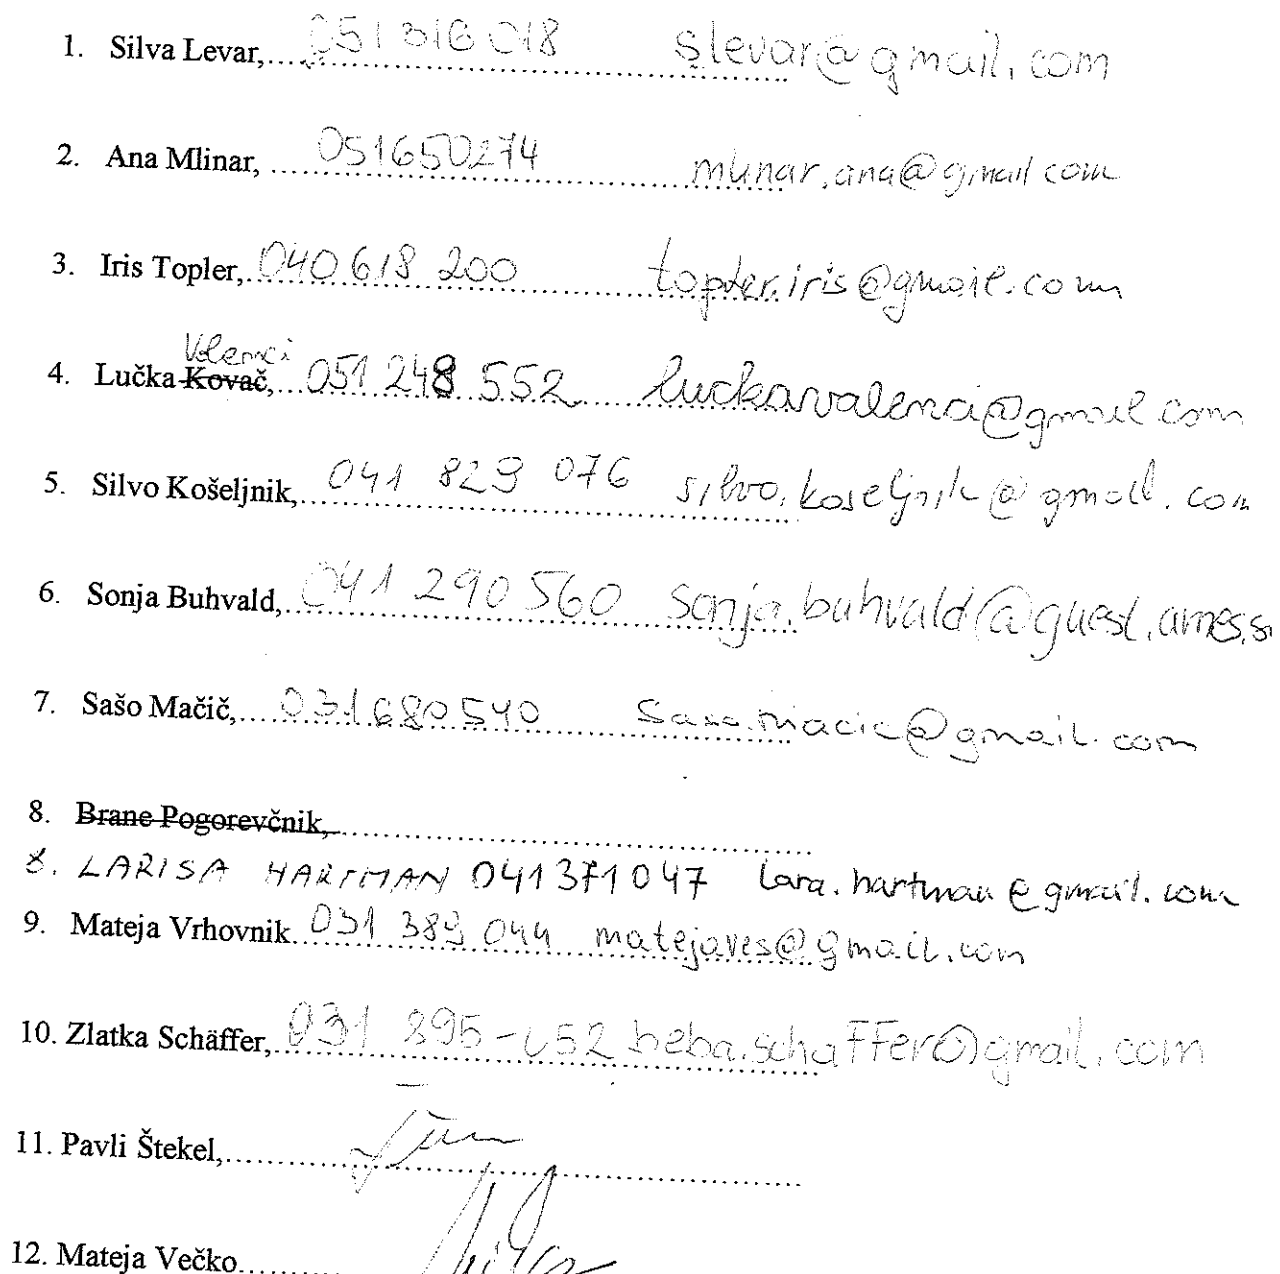 1. Silva Levar,.... 051 316 018 slevar@gmail.com
2. Ana Mlinar, .... 051650274 mlinar.ana@gmail.com
3. Iris Topler,.... 040 618 200 topler.iris@gmail.com
Valenci
4. Lučka Kovač,.... 051 248 552 luckavalenci@gmail.com
5. Silvo Košeljnik,.... 041 829 076 silvo.koseljnik@gmail.com
6. Sonja Buhvald,.... 041 290 560 sonja.buhvald@guest.arnes.si
7. Sašo Mačič,.... 031680540 saso.macic@gmail.com
8. Brane Pogorevčnik,....
8. LARISA HARTMAN 041371047 lara.hartman@gmail.com
9. Mateja Vrhovnik 031 389 044 matejaves@gmail.com
10. Zlatka Schäffer,.... 031 895-652 beba.schaffer@gmail.com
11. Pavli Štekel,....
12. Mateja Večko....